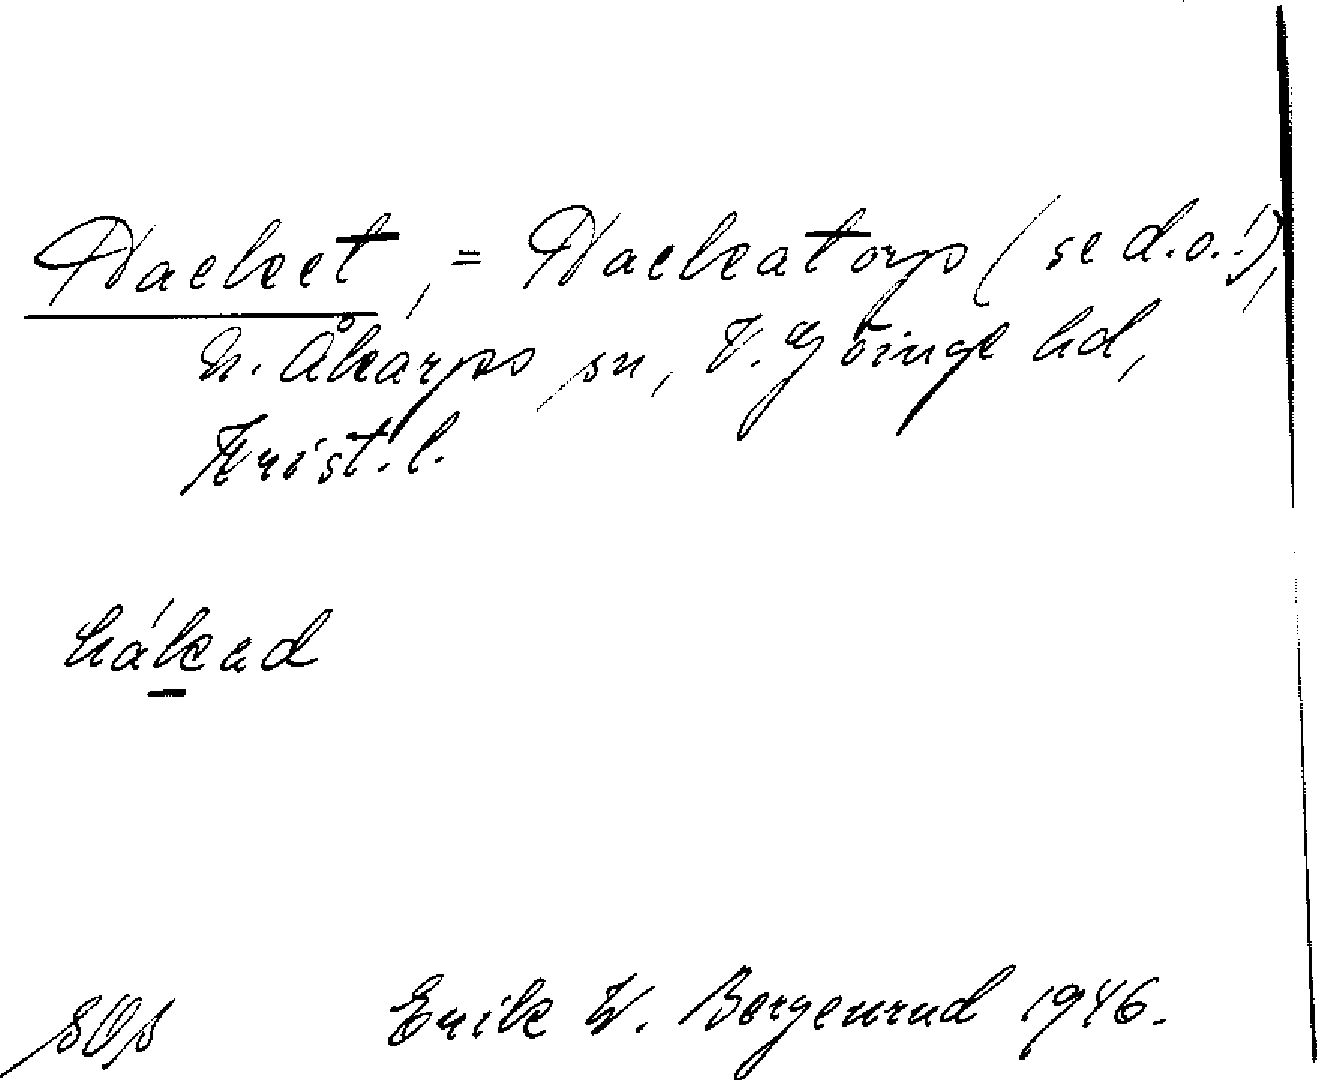 Nacket, = Nackatorp (se d.o.!),
N. Åkarps sn, V. Göinge hd,
Krist. l.
nákad
SOS Erik W. Bergenrud 1946.